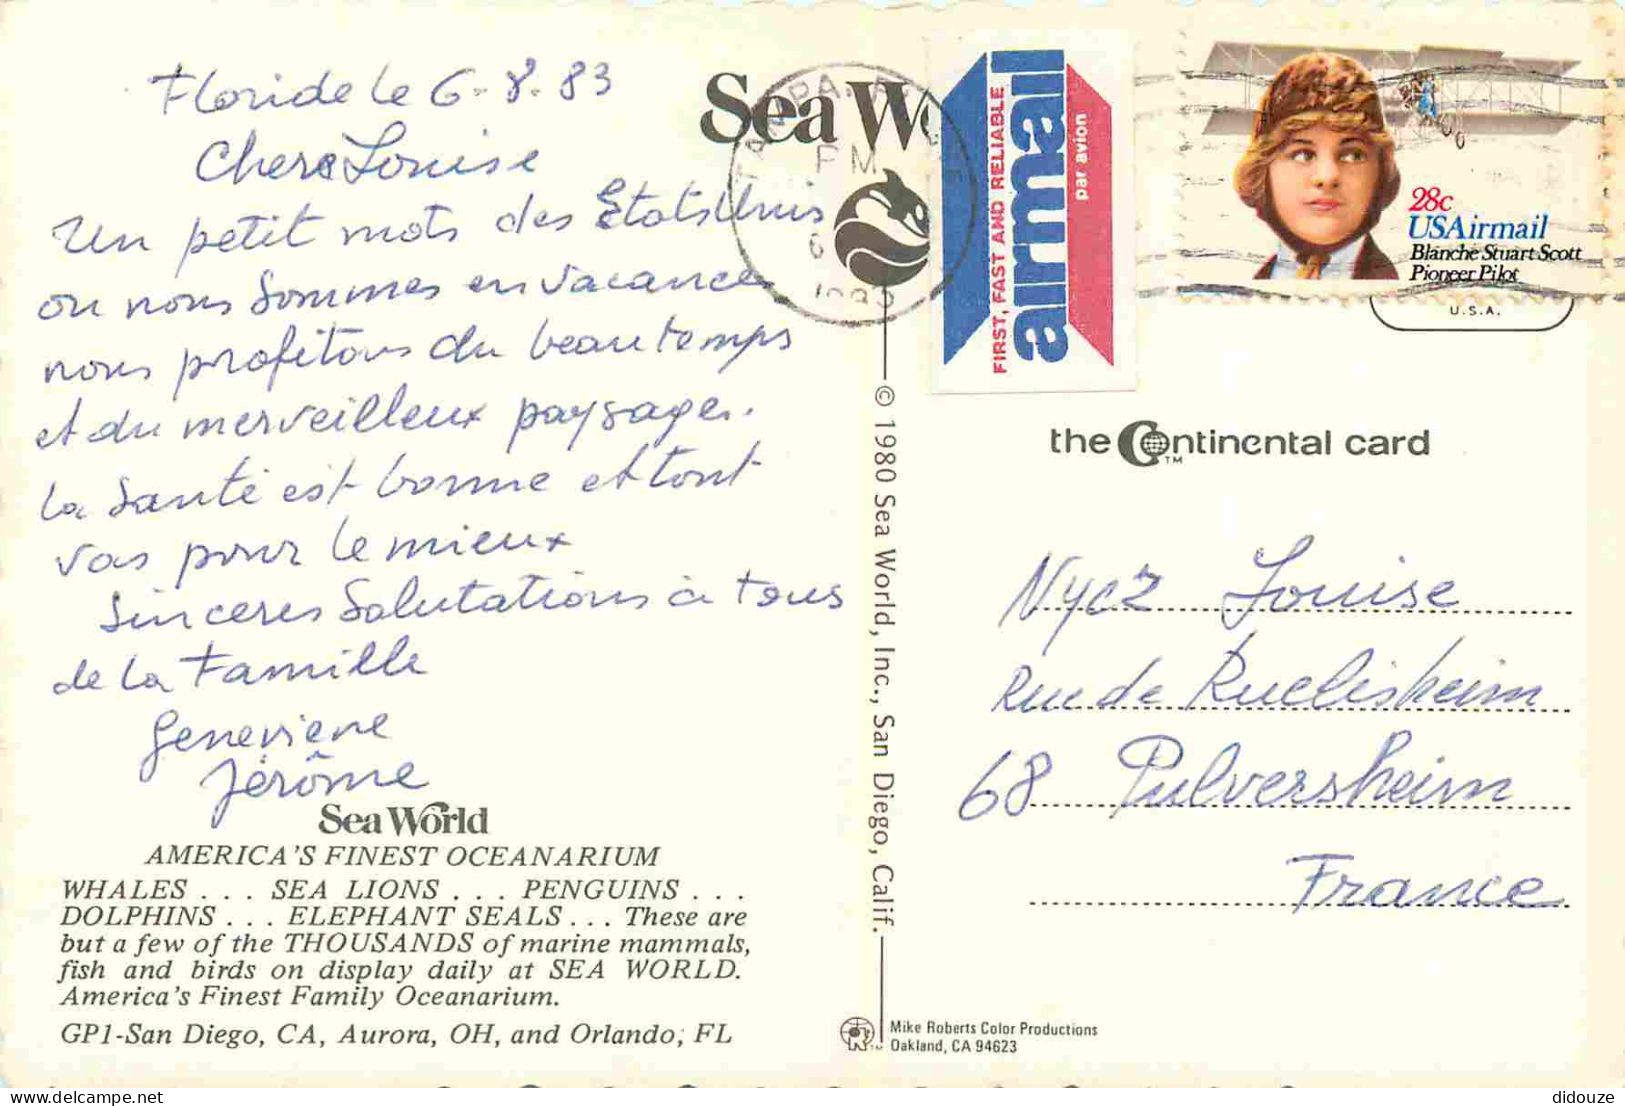 Floride le 6-8-83
Chere Louise
Un petit mots des Etats Unis
ou nous sommes en vacances
nous profitons du beau temps
et du merveilleux paysages.
la santé est bonne et tout
vas pour le mieux
Sinceres Salutations à tous
de la Famille
Geneviève
Jérôme
Sea World
AMERICA'S FINEST OCEANARIUM
WHALES . . . SEA LIONS . . . PENGUINS . . .
DOLPHINS . . . ELEPHANT SEALS . . . These are
but a few of the THOUSANDS of marine mammals,
fish and birds on display daily at SEA WORLD.
America's Finest Family Oceanarium.
GP1-San Diego, CA, Aurora, OH, and Orlando, FL
Sea Wo
TAMPA, F
PM
6
© 1980 Sea World, Inc., San Diego, Calif.
FIRST, FAST AND RELIABLE
airmail
par avion
28c
USAirmail
Blanche Stuart Scott
Pioneer Pilot
U.S.A.
the Continental card
TM
Nycz Louise
Rue de Ruelisheim
68 Pulversheim
France
Mike Roberts Color Productions
Oakland, CA 94623
delcampe.net
didouze